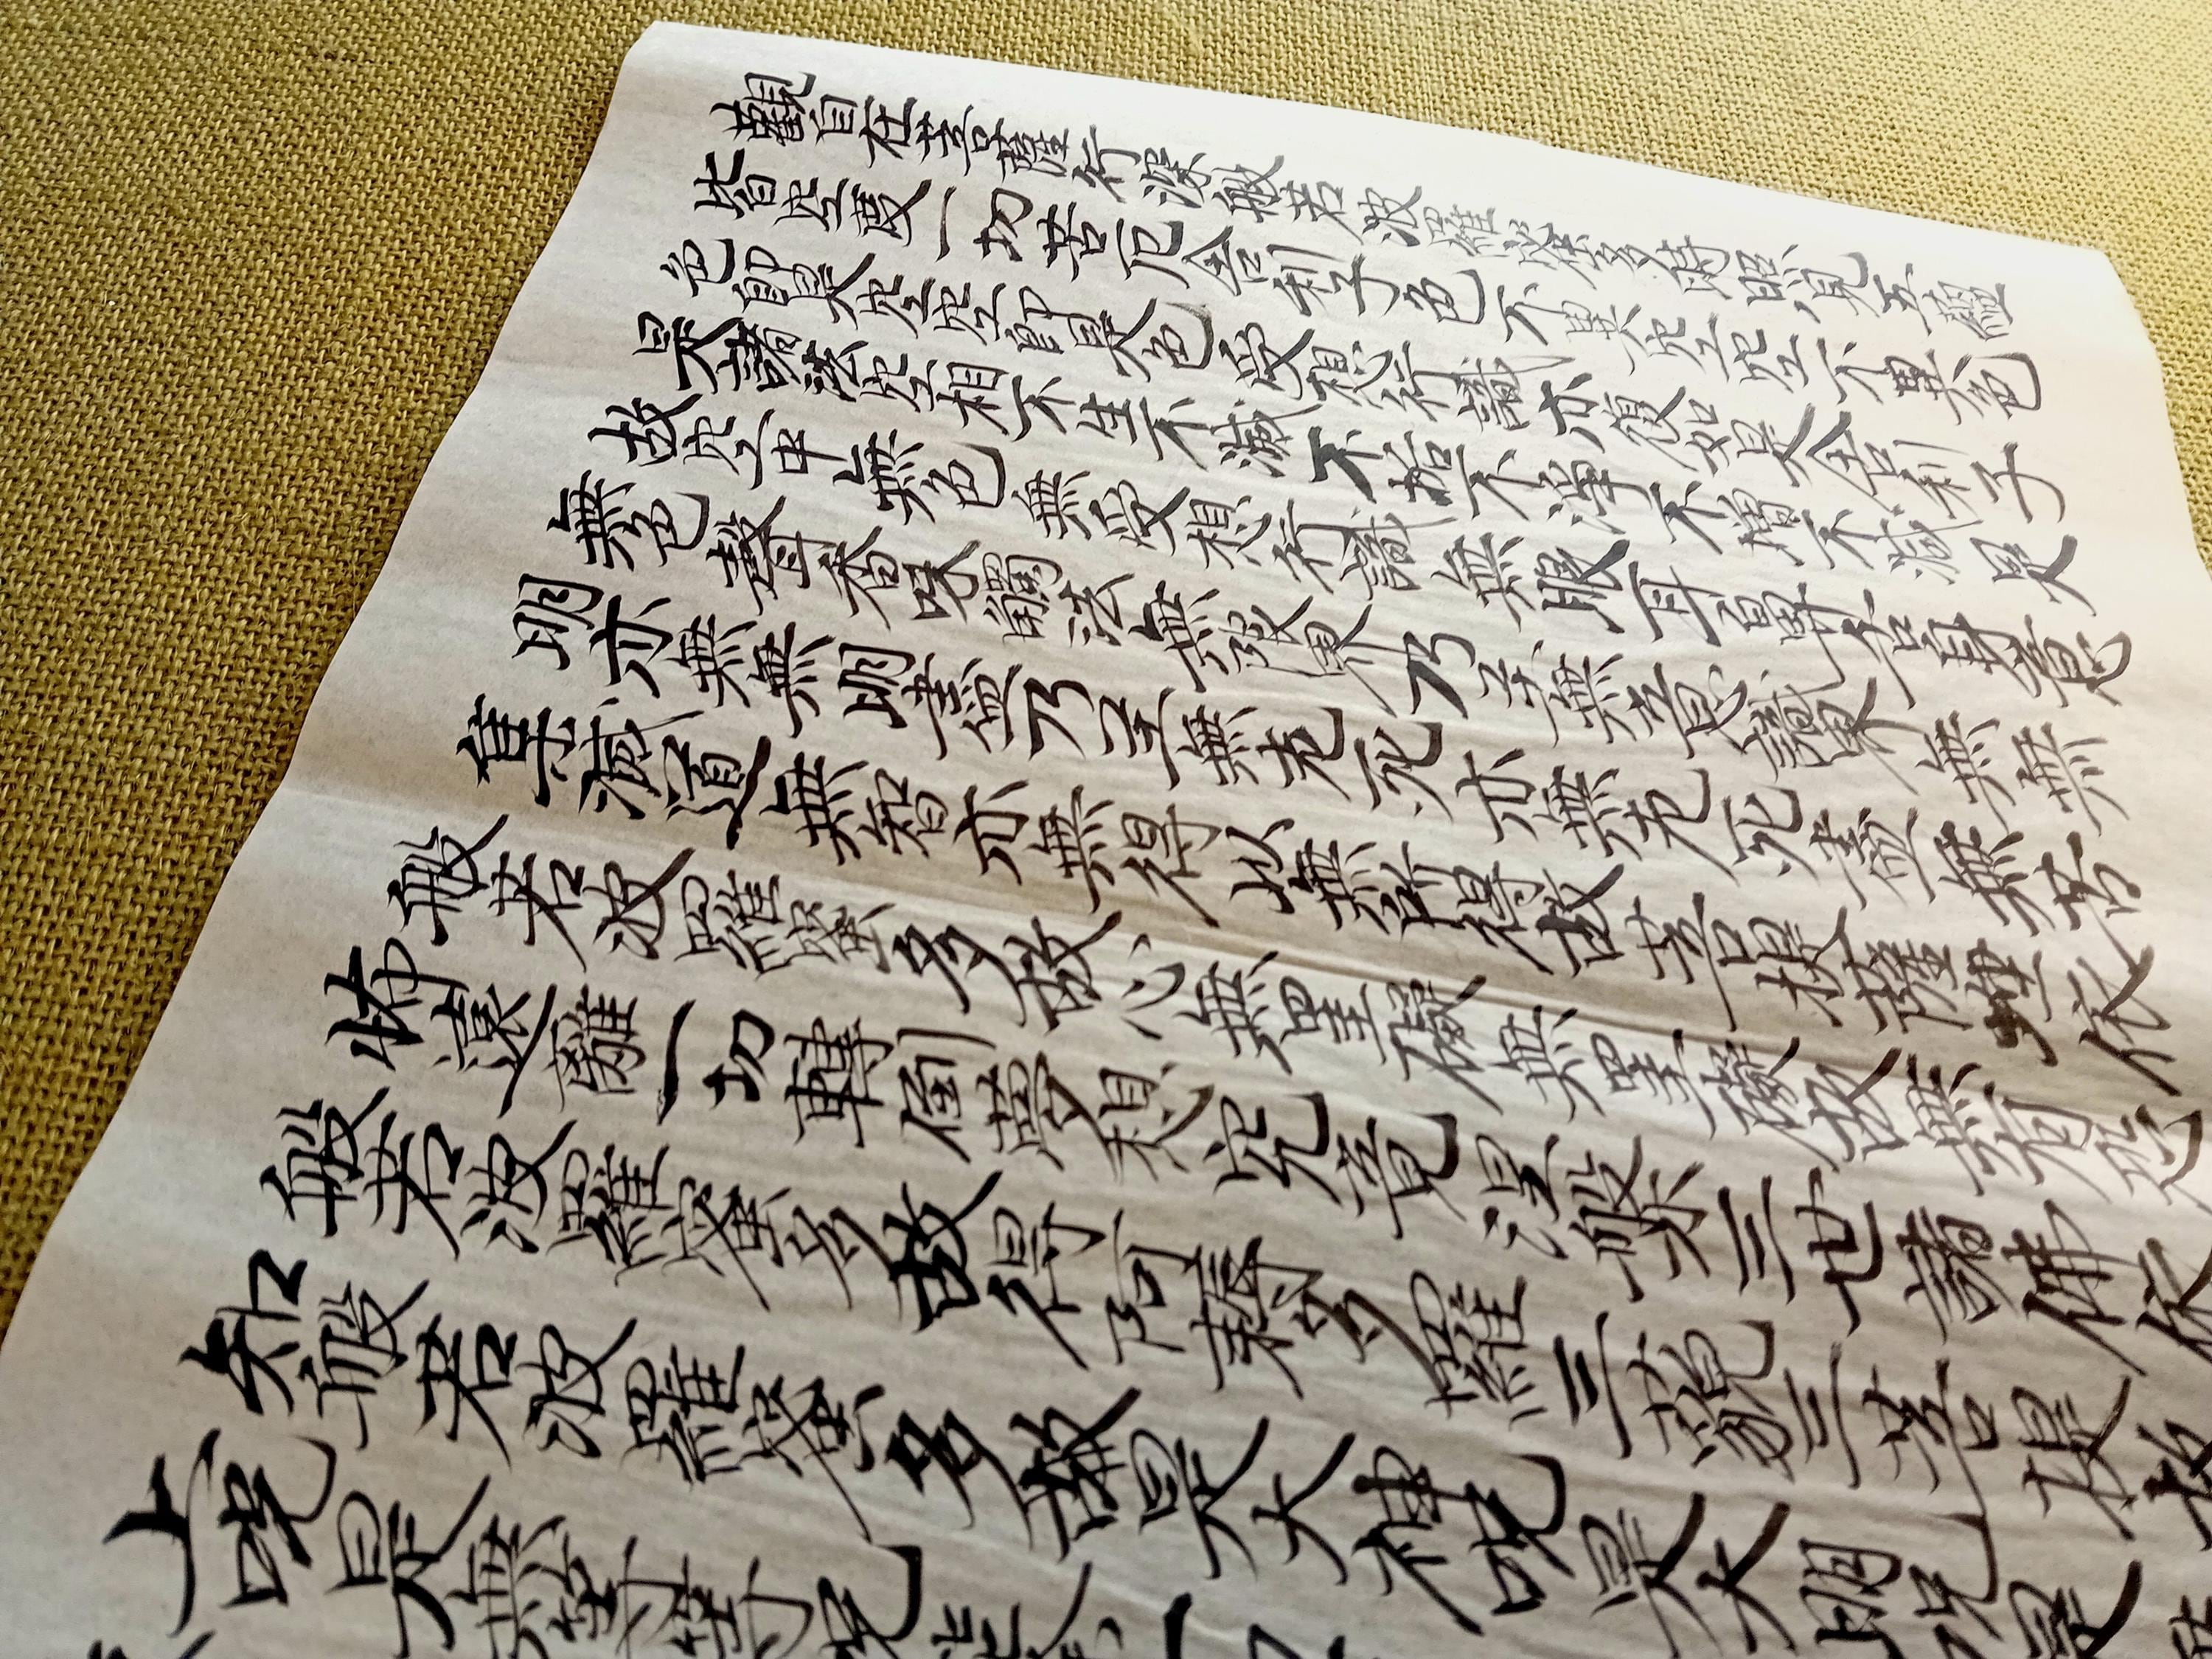 觀自在菩薩行深般若波羅蜜多時照見五蘊
皆空度一切苦厄舍利子色不異空空不異色
色即是空空即是色受想行識亦復如是舍利子
是諸法空相不生不滅不垢不淨不增不減是
故空中無色無受想行識無眼耳鼻舌身意
無色聲香味觸法無眼界乃至無意識界無無
明亦無無明盡乃至無老死亦無老死盡無苦
集滅道無智亦無得以無所得故菩提薩埵依
般若波羅蜜多故心無罣礙無罣礙故無有恐
怖遠離一切轉倒夢想究竟涅槃三世諸佛依
般若波羅蜜多故得阿耨多羅三藐三菩提故
知般若波羅蜜多故是大神咒是大明咒是無
上咒是無等等咒能